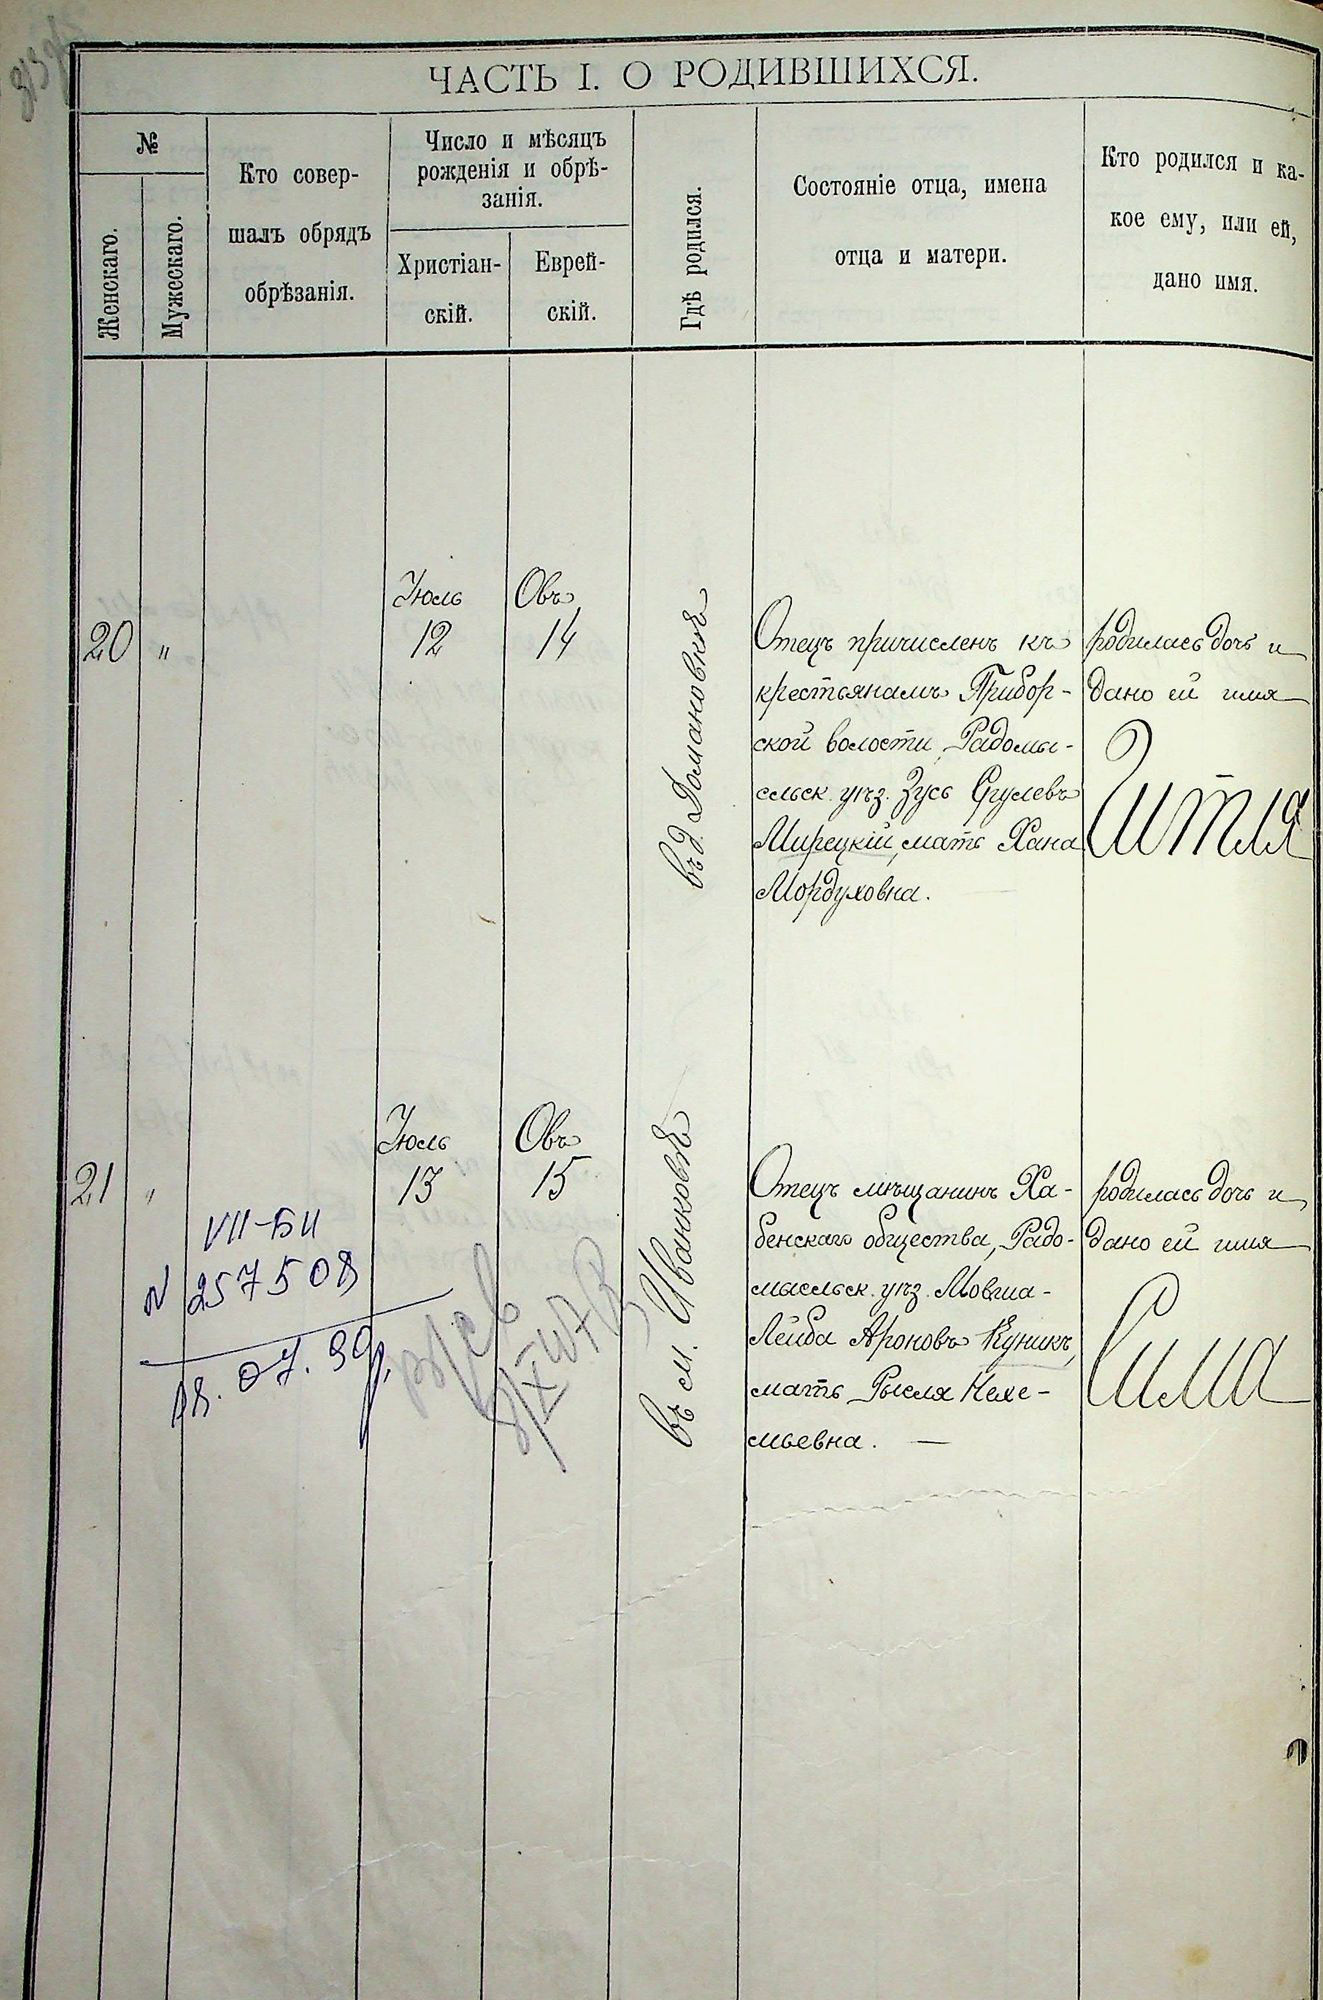 ЧАСТЬ I. О РОДИВШИХСЯ.
№
Женскаго.
Мужескаго.
Кто совер-
шалъ обрядъ
обрѣзанія.
Число и мѣсяцъ
рожденія и обрѣ-
занія.
Христіан-
скій.
Еврей-
скій.
Гдѣ родился.
Состояніе отца, имена
отца и матери.
Кто родился и ка-
кое ему, или ей,
дано имя.
20
"
Іюль
12
Овъ
14
въ д. Домановкѣ
Отецъ причисленъ къ
крестьянамъ Прибор-
ской волости, Радомы-
сльск. уѣз. Зусь Срулевъ
Мирецкій, мать Хана
Мордуховна.
родилась дочь и
дано ей имя
Гитля
21
"
Іюль
13
Овъ
15
въ м. Иванковѣ
Отецъ мѣщанинъ Ха-
бенскаго общества, Радо-
мысльск. уѣз. Мовша-
Лейба Ароновъ Куникъ,
мать Рысля Нехе-
мьевна. —
родилась дочь и
дано ей имя
Сима
VII-БИ
N 257508
07. 90р.